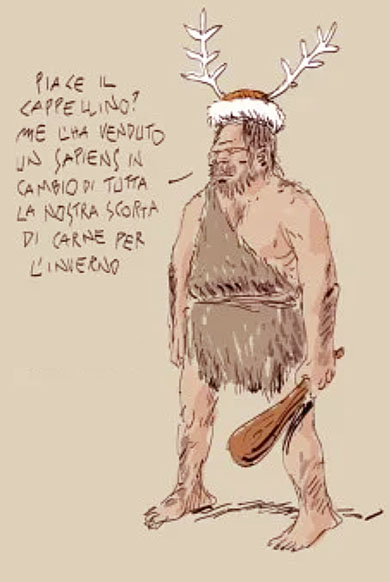 PIACE IL
CAPPELLINO?
ME L'HA VENDUTO
UN SAPIENS IN
CAMBIO DI TUTTA
LA NOSTRA SCORTA
DI CARNE PER
L'INVERNO